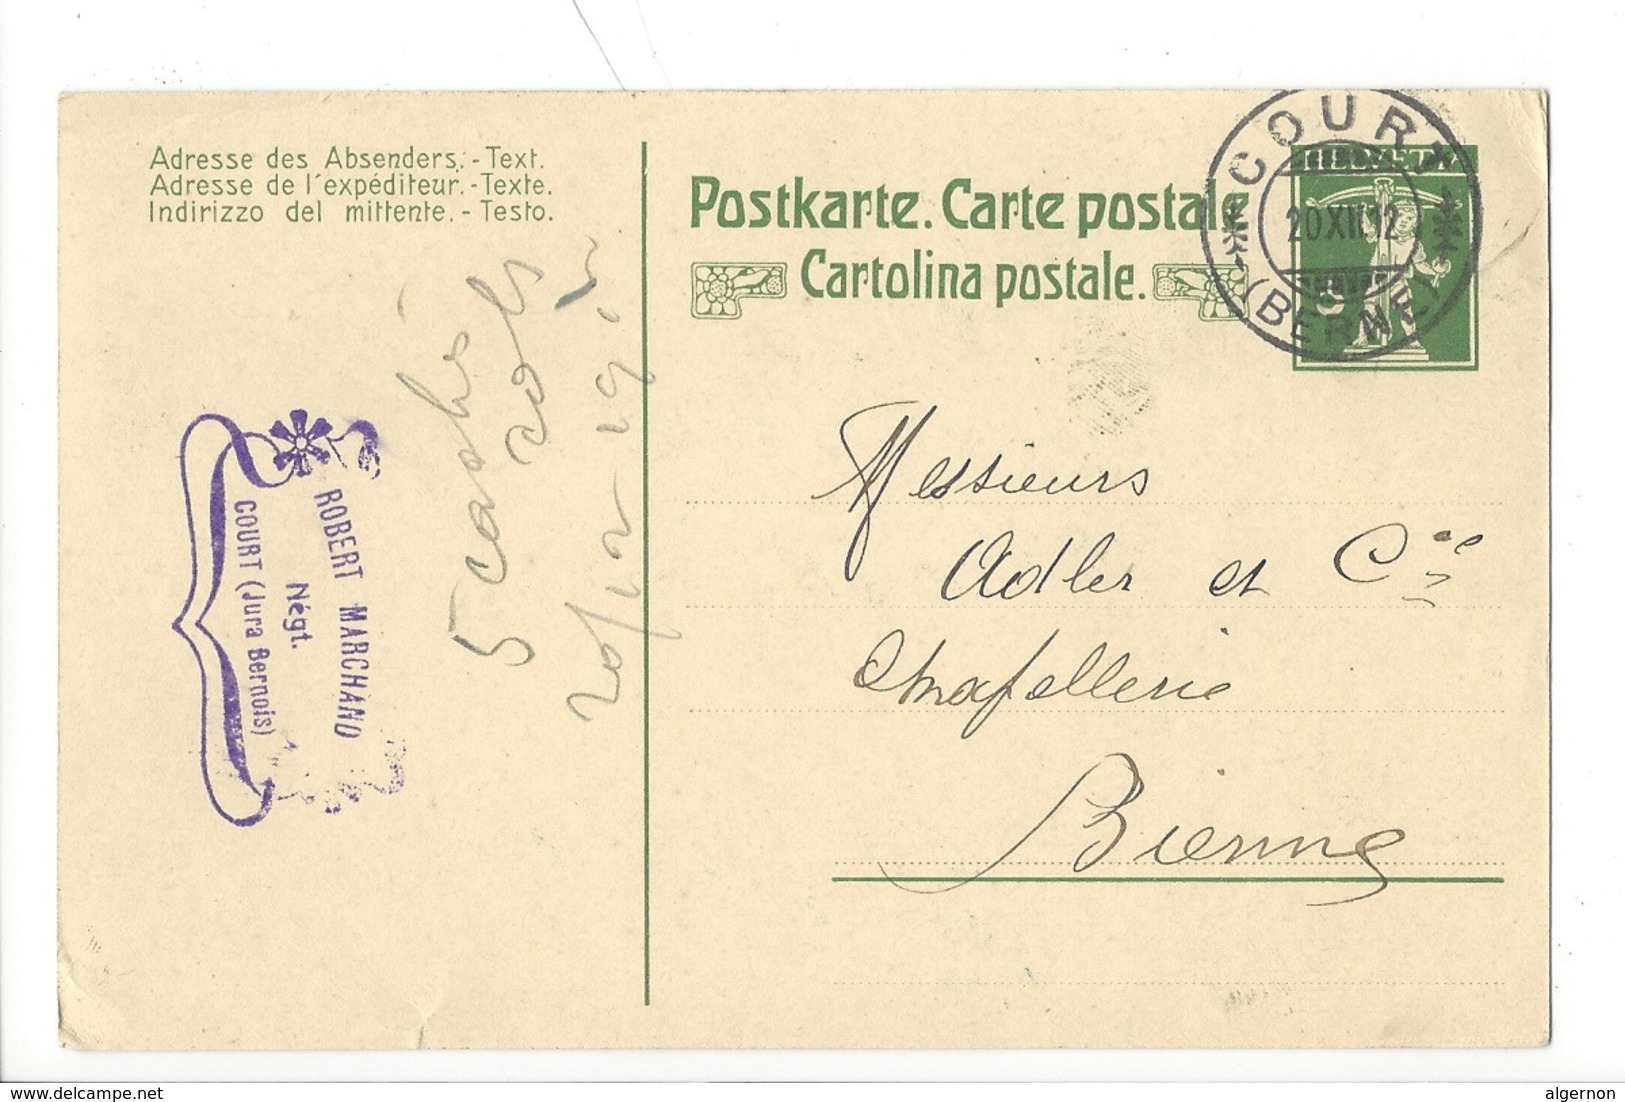 Adresse des Absenders. - Text.
Adresse de l'expéditeur. - Texte.
Indirizzo del mittente. - Testo.
Postkarte. Carte postale
Cartolina postale.
COURT
20 XII 12
(BERNE)
HELVETIA
5
ROBERT MARCHAND
Négt.
COURT (Jura Bernois)
Messieurs
Adler et Cie
Chapellerie
Bienne
5
20/12
delcampe.net
algernon